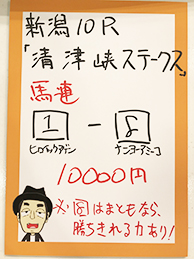 新潟10R
「清津峡ステークス」
馬連
1 - 8
ヒロノラディアン ケンヨーアミーゴ
10000円
※8はまともなら、
勝ちきれる力あり!